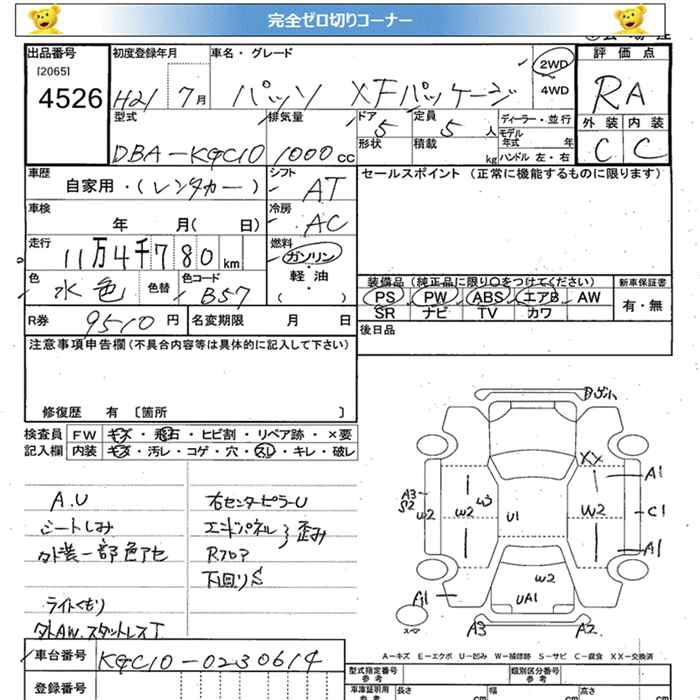 完全ゼロ切りコーナー
出品番号
[2065]
4526
初度登録年月
H21 7月
車名・グレード
パッソ XFパッケージ
2WD
4WD
評価点
RA
外装 内装
C C
型式
DBA-KGC10
排気量
1000cc
ドア
5
形状
定員
5人
積載
kg
ディーラー・並行
モデル
年式 年
ハンドル 左・右
車歴
自家用・(レンタカー)
シフト
AT
セールスポイント (正常に機能するものに限ります)
車検
年 月( 日)
冷房
AC
走行
11万4千780km
燃料
ガソリン
・
軽・油
・
( )
色
水色
色替
色コード
B57
装備品 (純正品に限り○をつけてください)
PS PW ABS エアB AW
SR ナビ TV カワ
新車保証書
有・無
R券 9510円
名変期限 月 日
後日品
注意事項申告欄(不具合内容等は具体的に記入して下さい)
修復歴 有 〔箇所 〕
検査員 FW キズ・飛石・ヒビ割・リペア跡・×要
記入欄 内装 キズ・汚レ・コゲ・穴・スレ・キレ・破レ
A.U
シートしみ
外装一部色アセ
ライトくもり
外AW.スタットレスT
右センターピラーU
エンドパネル 歪み
Rフロア
下回りS
XX
A1
A3
S2
U2
W2
U3
U1
W2
C1
A1
W2
UA1
A1
スペア
A3
A2
A-キズ E-エクボ U-凹み W-補修跡 S-サビ C-腐食 XX-交換済
車台番号 KGC10-0230614
登録番号
型式指定番号
参考
類別区分番号
参考
車庫証明用
参考
長さ cm
幅 cm
高さ cm